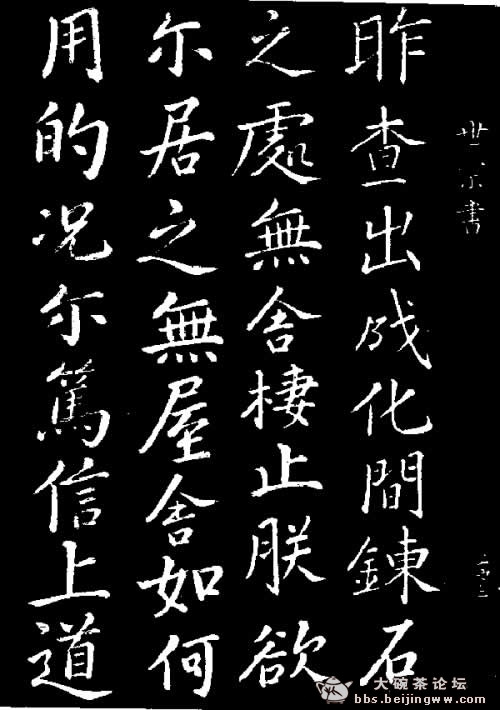 世宗書
昨查出成化間鍊石
之處無舍棲止朕欲
尔居之無屋舍如何
用的况尔篤信上道
大碗茶论坛
bbs.beijingww.com